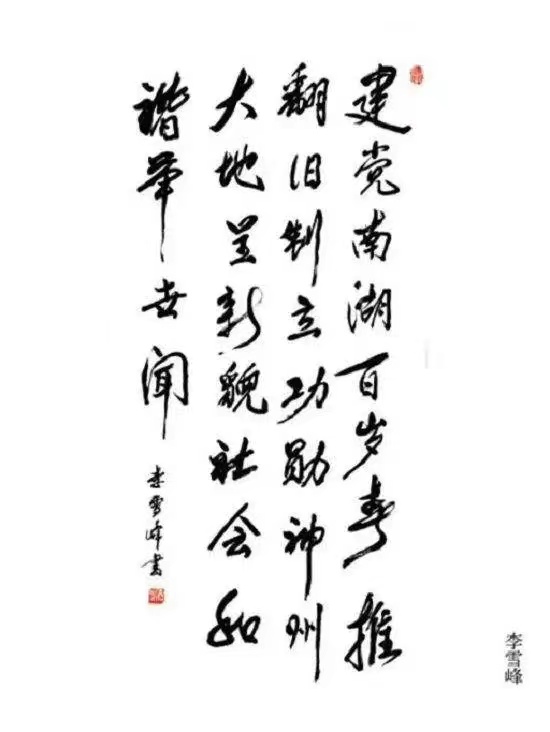 建党南湖百岁春推
翻旧制立功勋神州
大地呈新貌社会和
谐举世闻
李雪峰书
李雪峰